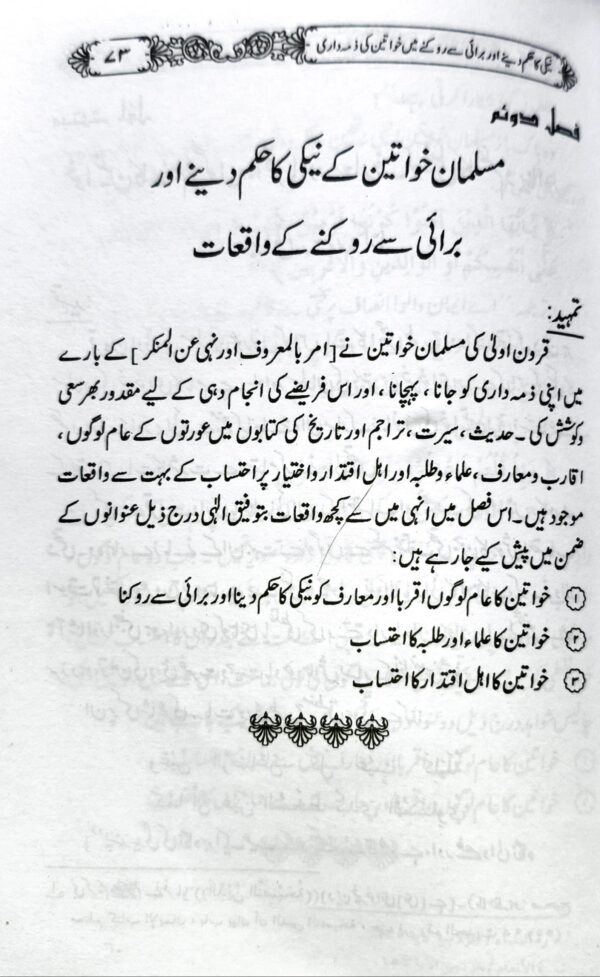 نیکی کا حکم دینے اور برائی سے روکنے میں خواتین کی ذمہ داری
۷۳
فصل دوئم
مسلمان خواتین کے نیکی کا حکم دینے اور
برائی سے روکنے کے واقعات
تمہید:
قرون اولیٰ کی مسلمان خواتین نے [امر بالمعروف اور نہی عن المنکر] کے بارے
میں اپنی ذمہ داری کو جانا، پہچانا، اور اس فریضے کی انجام دہی کے لیے مقدور بھر سعی
وکوشش کی۔ حدیث، سیرت، تراجم اور تاریخ کی کتابوں میں عورتوں کے عام لوگوں،
اقارب ومعارف، علماء وطلبہ اور اہل اقتدار واختیار پر احتساب کے بہت سے واقعات
موجود ہیں۔ اس فصل میں انہی میں سے کچھ واقعات بتوفیق الٰہی درج ذیل عنوانوں کے
ضمن میں پیش کیے جارہے ہیں:
① خواتین کا عام لوگوں اقربا اور معارف کو نیکی کا حکم دینا اور برائی سے روکنا
② خواتین کا علماء اور طلبہ کا احتساب
③ خواتین کا اہل اقتدار کا احتساب